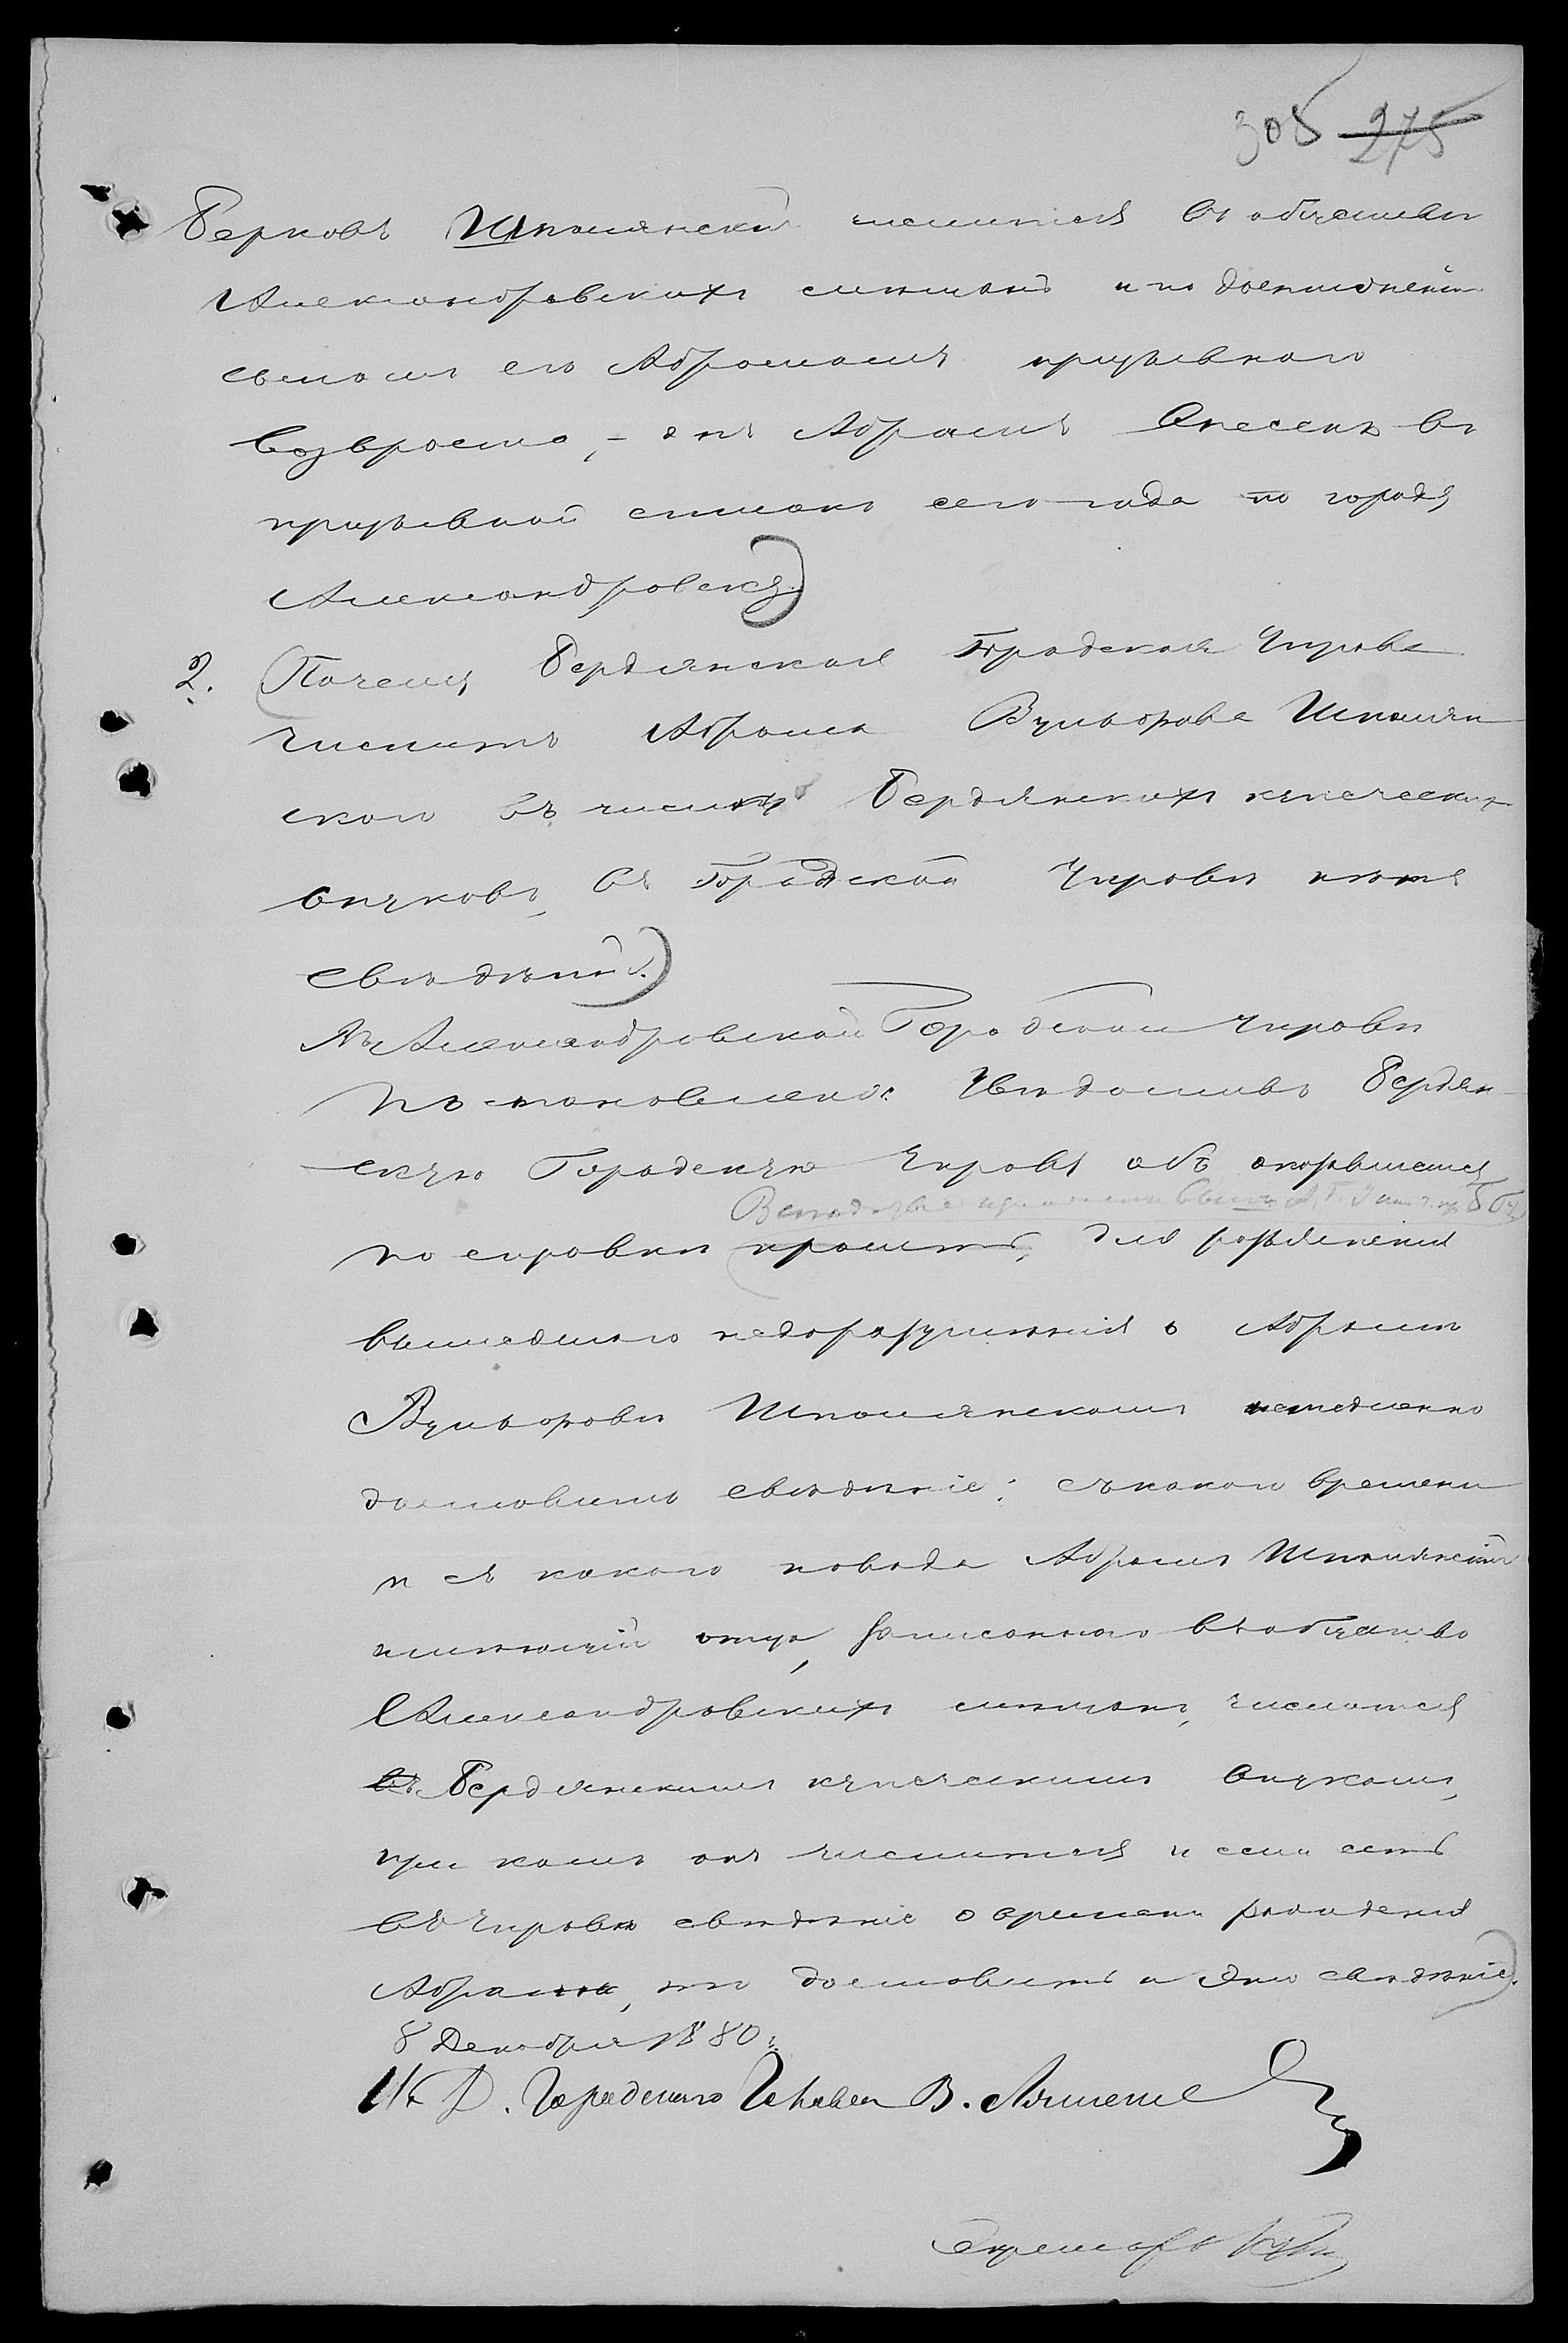 305 275
Берковъ Шполянскій числится въ обществѣ
Александровскихъ мѣщанъ и по достиженіи
сыномъ его Абрамомъ призывного
возвраста, – онъ Абрамъ внесенъ въ
призывной списокъ сего года по городу
Александровску.)
2. (Почему Бердянская Городская Управа
числитъ Абрама Вульфова Шполян
ского въ числѣ Бердянскихъ купеческихъ
внуковъ, въ Городской Управѣ нѣтъ
свѣдѣній.)
Въ Александровской Городской Управѣ
постановлено: Увѣдомивъ Бердян-
скую Городскую Управу объ оказавшемся
по справкѣ просить, для разъясненія
вышедшаго недоразумѣнія о Абрамѣ
Вульфовѣ Шполянскомъ немедленно
доставить свѣдѣніе: съ какого времени
и съ какого повода Абрамъ Шполянскій
имѣющій отца, записанного въ общество
Александровскихъ мѣщанъ, числится
въ Бердянскимъ купеческимъ внукомъ,
при комъ онъ числится и если есть
въ Управѣ свѣдѣніе о времени рожденія
Абрама, то доставить и это свѣдѣніе.)
8 Декабря 1880 г.
И. Д. Городского Головы В.
Секретарь